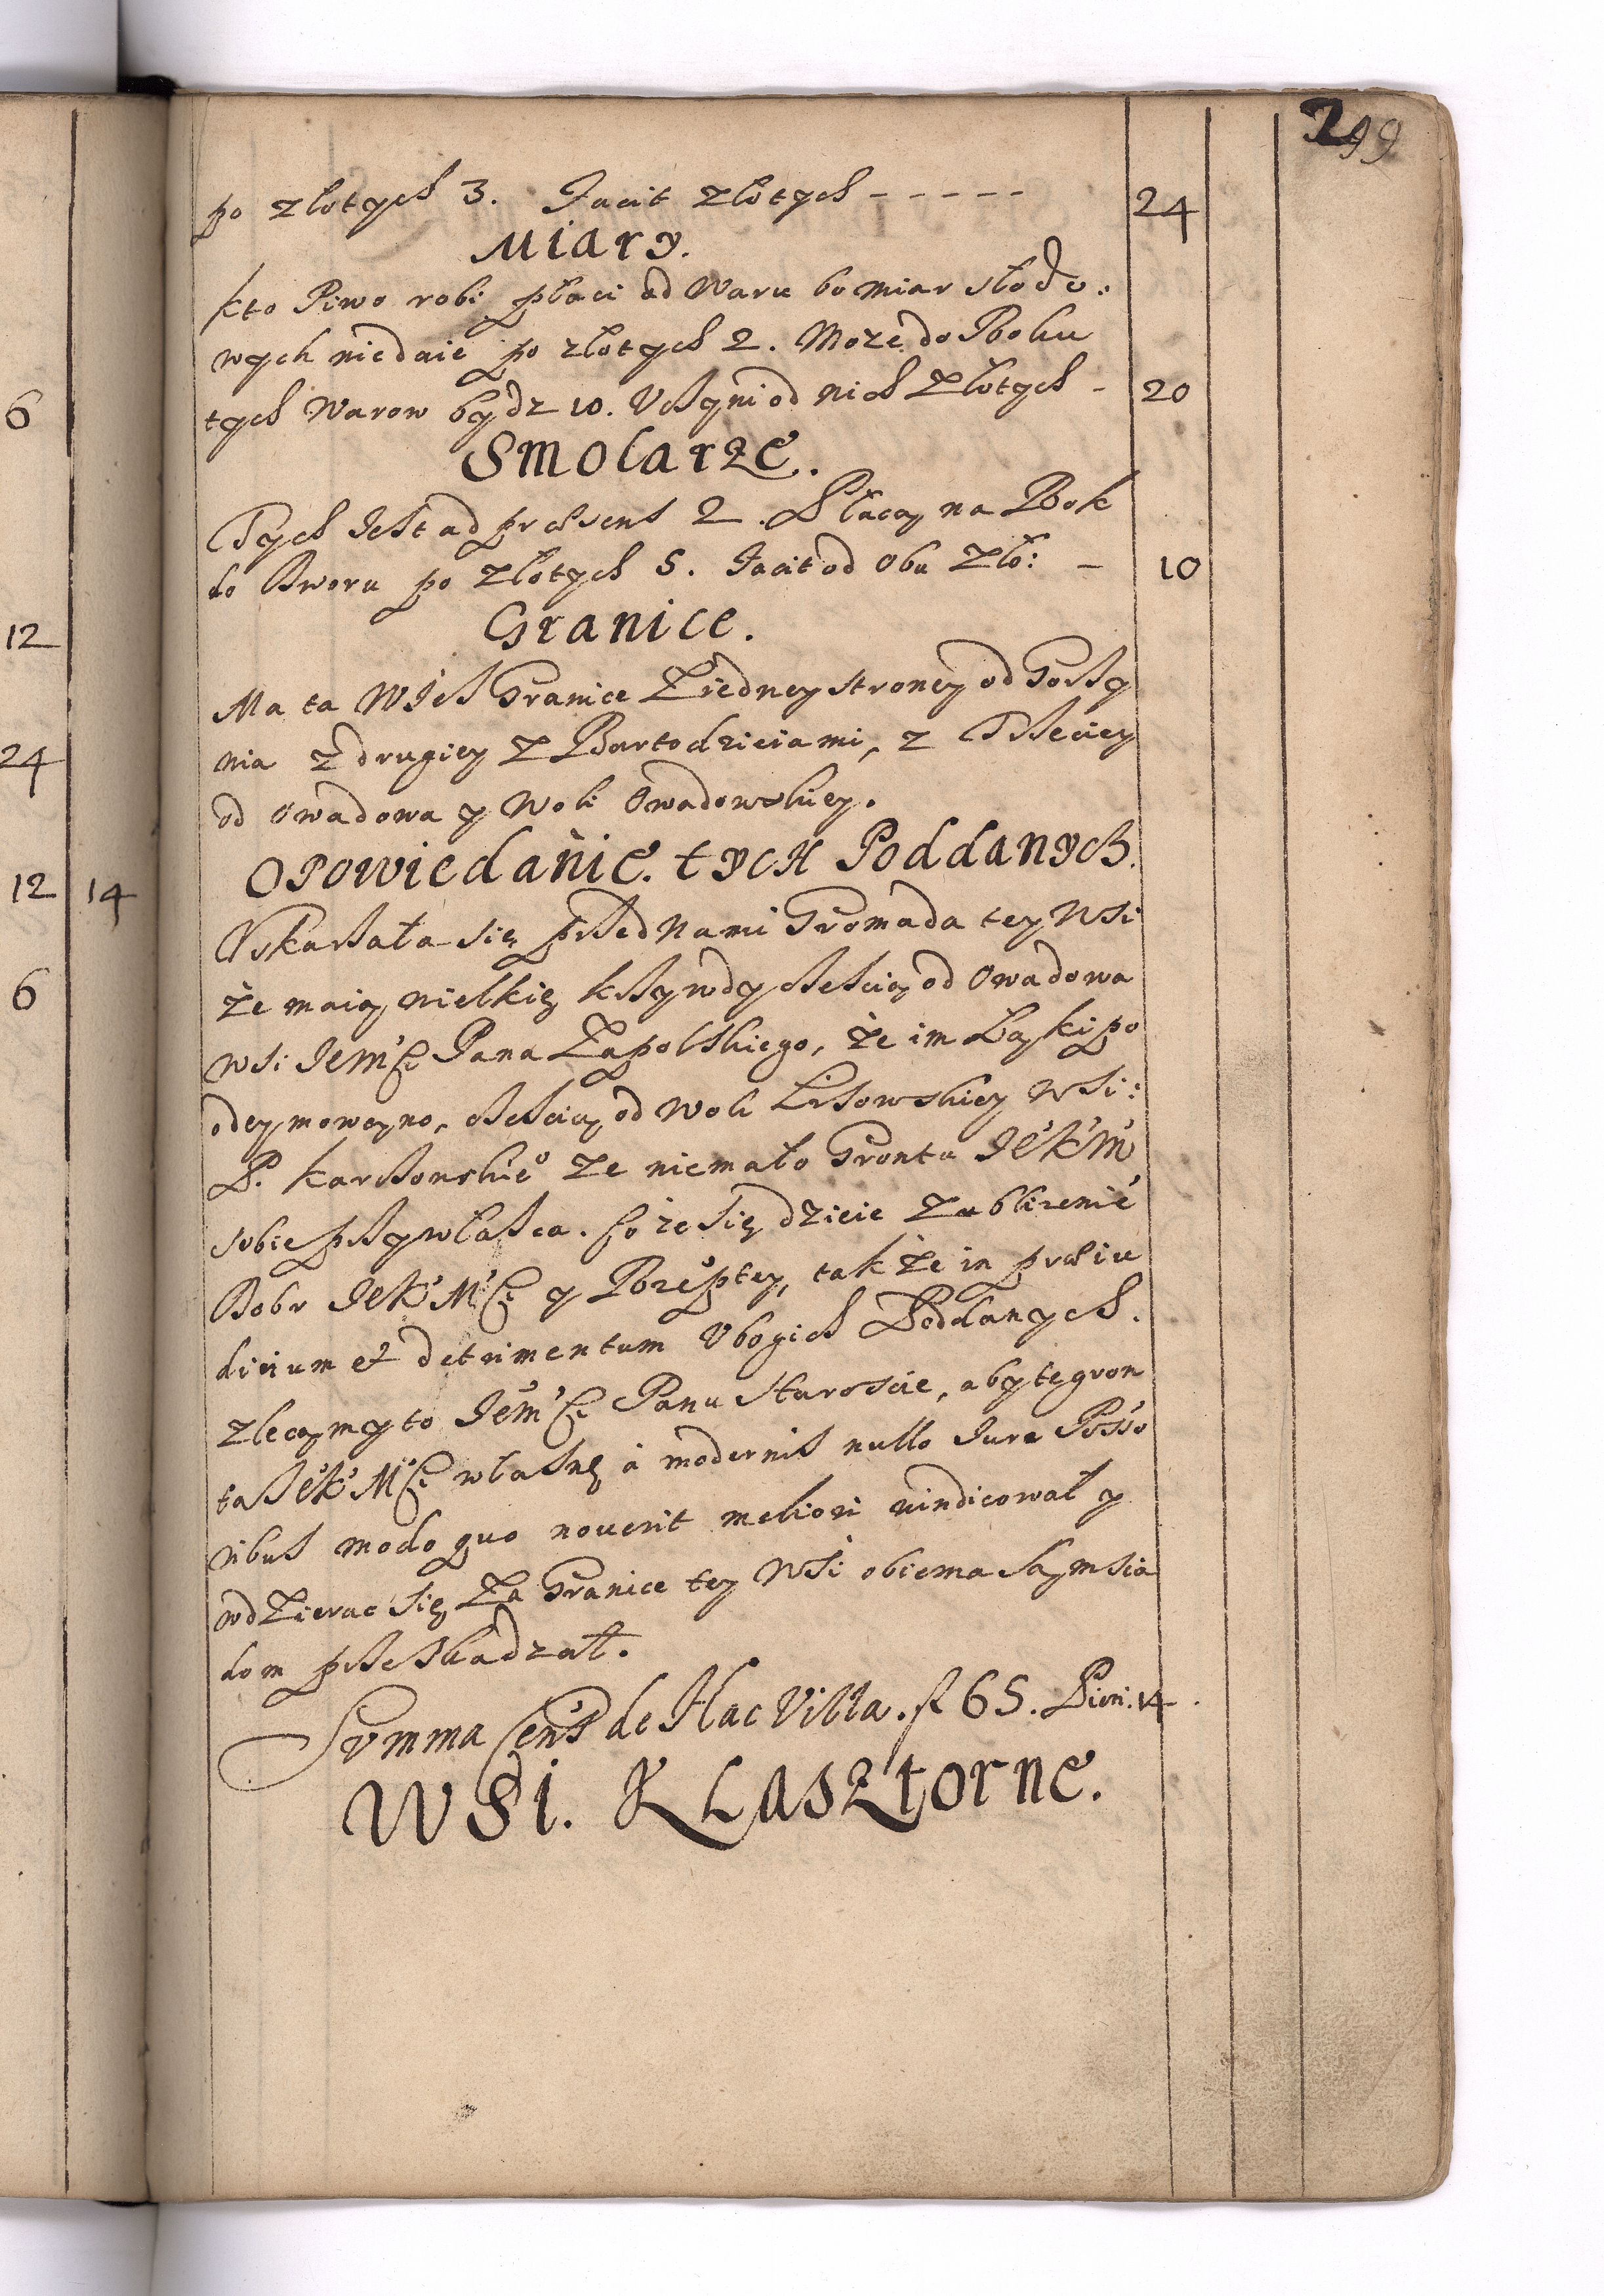 299
po złotych 3. Facit złotych - - - - - 24
Miary.
kto Piwo robi płaci od Waru bo miar słodo:
wych niedaie po złotych 2. Może do Roku
tych Warow bydz 10. Uczyni od nich złotych - 20
Smolarze.
Tych Jest ad præsens 2. Płacą na Rok
do Dworu po złotych 5. Facit od obu zło: - 10
Granice.
Ma ta Wieś Granice z iedney strony od Goszczy
nia z drugiey z Bartodzieiami, z Trzeciey
od Owadowa y Woli Owadowskiey.
Opowiedanie tych Poddanych.
Uskarżała się przed Nami Gromada tey Wsi
że maią wielkię krzywdy częścią od Owadowa
wsi Jem̃ci Pana Zapolskiego, że im Łąki po
odeymowano, częścią od Woli Lisowskiey wsi:
P. Karszowskie͠ że niemało Gruntu JeK̃M
sobie przywłaszcza. Co że się dzieie z ubliżenie
Dobr JeK̃Mci y Rzeptey, także in præiu
dicium et detrimentum Ubogich Poddanych.
zlecamy to Jem̃ci Panu Staroście, aby te gron
ta JeK̃Mci własnę à modernis nullo Jure Posso
ribus modo quo noverit meliori vindicował y
wdzierac się za Granice tey Wsi obiema Sąmsia
dom przeszkadzał.
Summa Cens̃ de Hac Villa. f 65. Pieni: 14.
Wsi. Klasztorne.
6
12
24
12 14
6